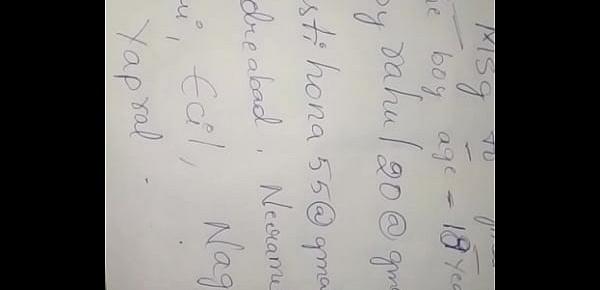 Msg to
boy age - 18 yea
oy rahul 20@gm
sti hona 55@gma
dreabad, Nerame
i, Ecil, Nag
Yapral.